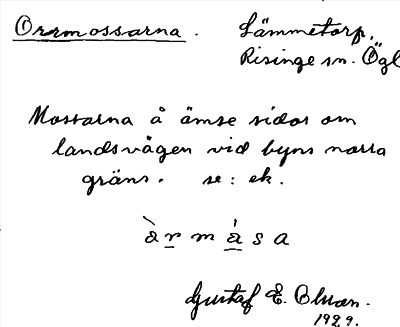 Orrmossarna. Lämmetorp,
Risinge sn. Ögl
Mossarna å ömse sidor om
landsvägen vid byns norra
gräns. se: ek.
àrmåsa
Gustaf E.
1929.